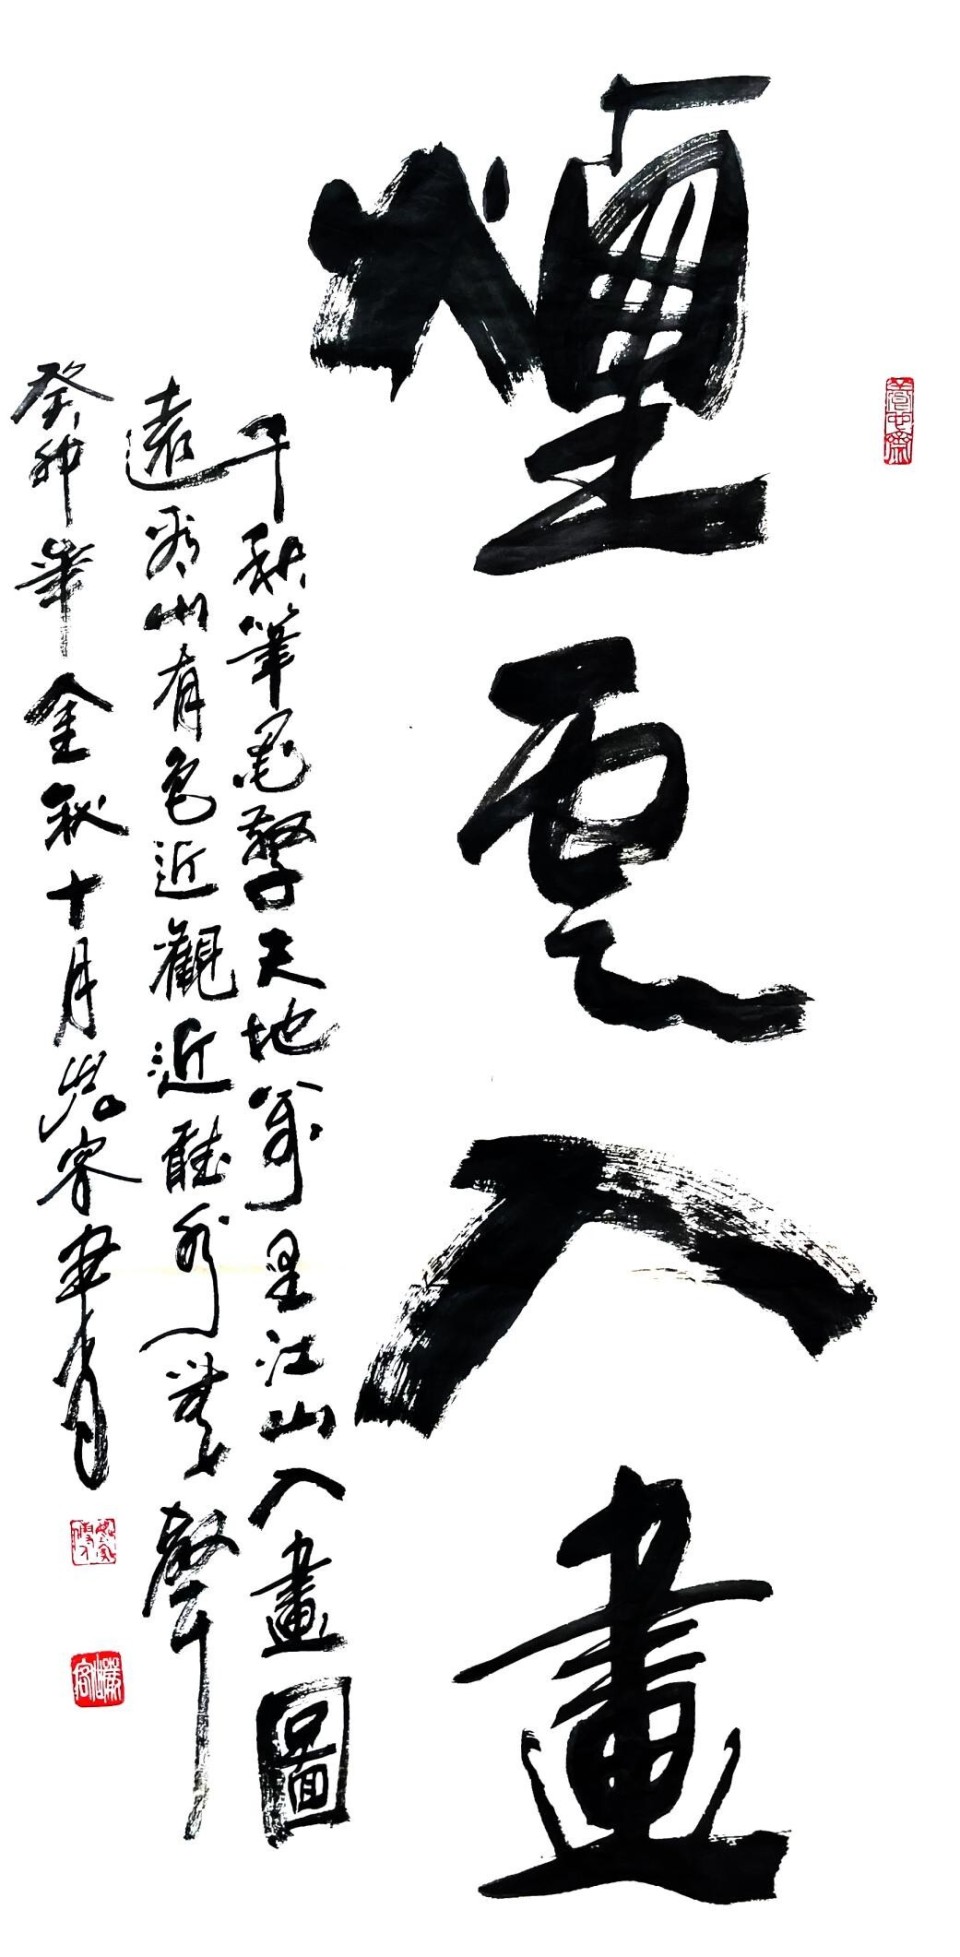 煙雲入畫
千秋筆墨擎天地萬里江山入畫圖
遠看山有色近觀近聽水無聲
癸卯年金秋十月客書